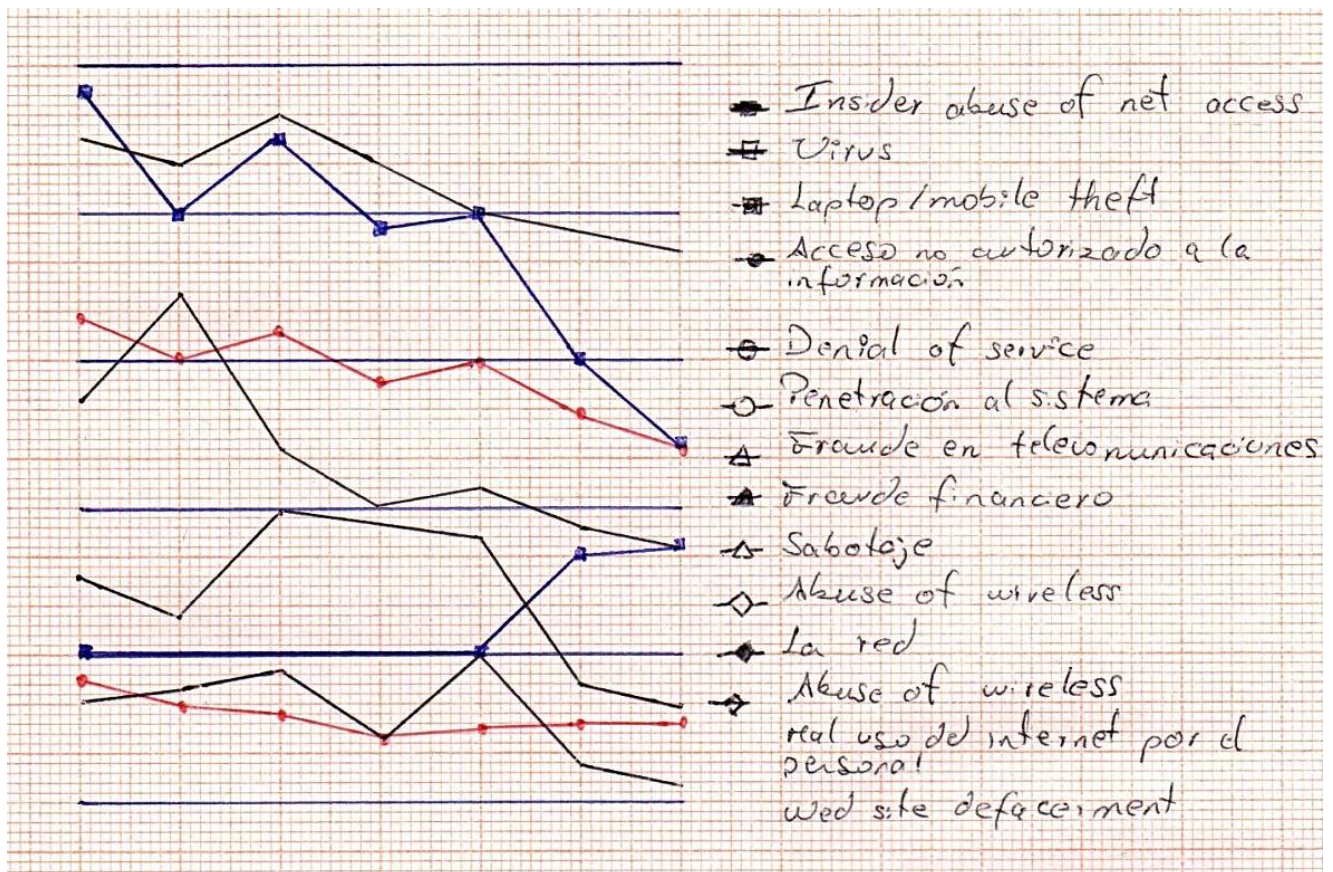 Insider abuse of net access
Virus
Laptop/mobile theft
Acceso no autorizado a la
información
Denial of service
Penetración al sistema
Fraude en telecomunicaciones
Fraude financiero
Sabotaje
Abuse of wireless
La red
Abuse of wireless
real uso del internet por el
personal
Wed site defacement